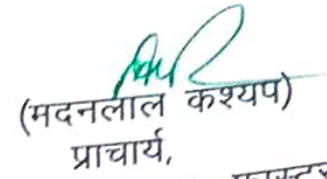 (मदनलाल कश्यप)
प्राचार्य,